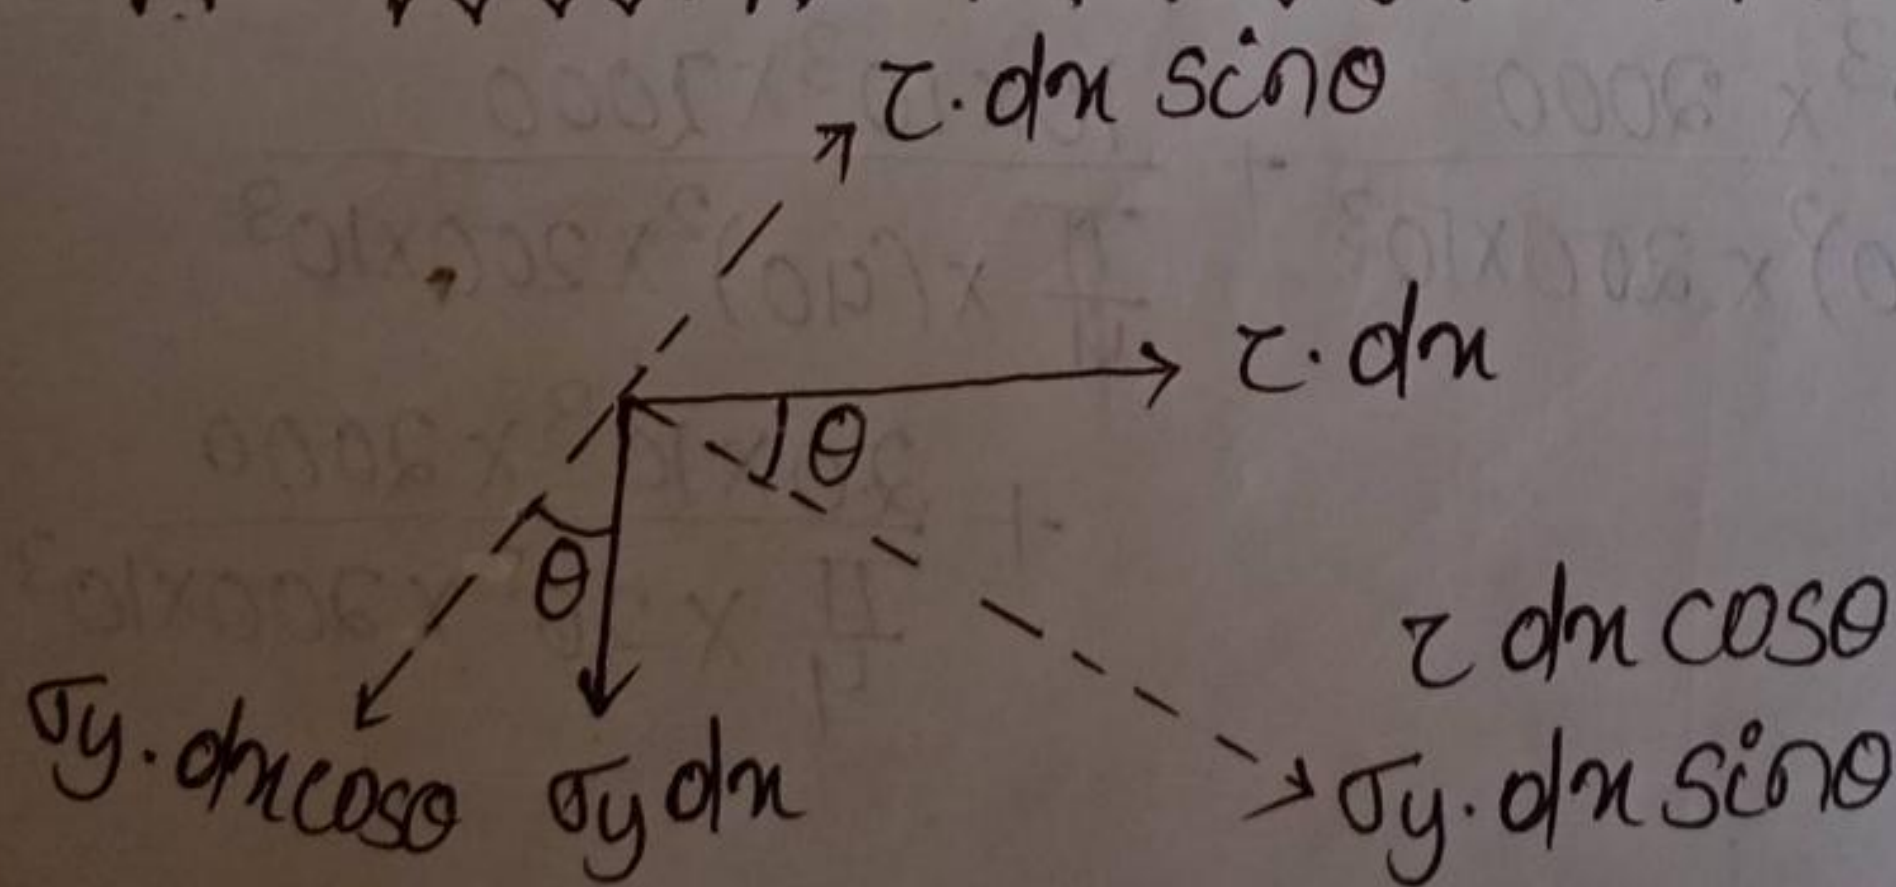 τ. dx sinθ
τ. dx
θ
θ
τ dx cosθ
σy. dx cosθ
σy dx
σy. dx sinθ